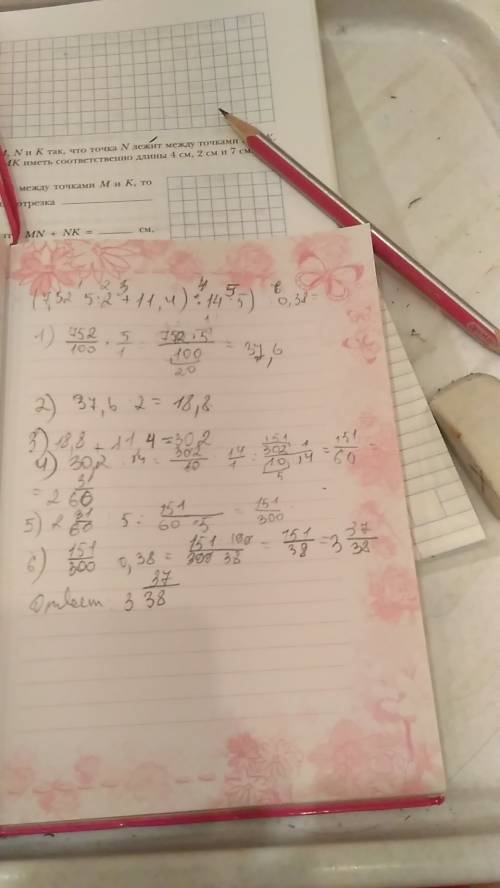 M, N и K так, что точка N лежит между точками
MK иметь соответственно длины 4 см, 2 см и 7 см
между точками M и K, то
отрезка
MN + NK = ______ см,
1 2 3 4 5 6
(7,52 5:2+11,4) : 14:5) 0,38=
1) 752/100 · 5/1 = 752·5/100 = 37,6
20
2) 37,6 2 = 18,8
3) 18,8 + 11 4 = 30,2
4) 30,2 : 14 =
= 2 31/60
5) 2 31/60 5 : 151/60·5 = 151/300
6) 151/300 0,38 = 151 100/300 38 = 151/38 = 3 37/38
Ответ 3 37/38